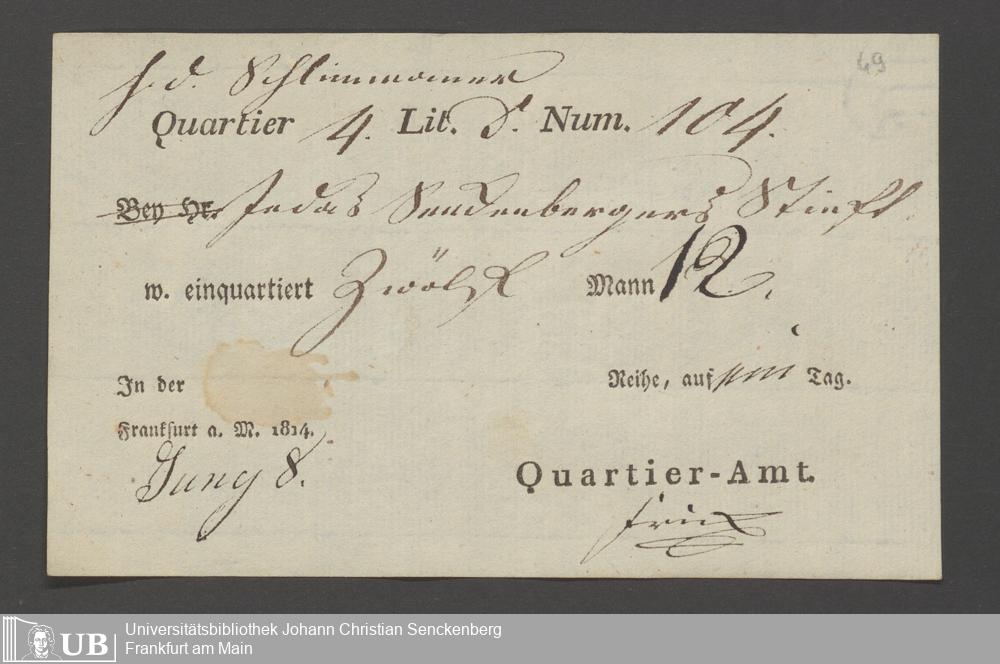 49
h. d. Schlimmomer
Quartier 4. Lit. D. Num. 104.
Bey Hr. Senckenbergers Stift
w. einquartiert Zwölf Mann 12.
In der Reihe, auf ein Tag.
Frankfurt a. M. 1814.
Juny 8.
Quartier-Amt.
UB Universitätsbibliothek Johann Christian Senckenberg
Frankfurt am Main